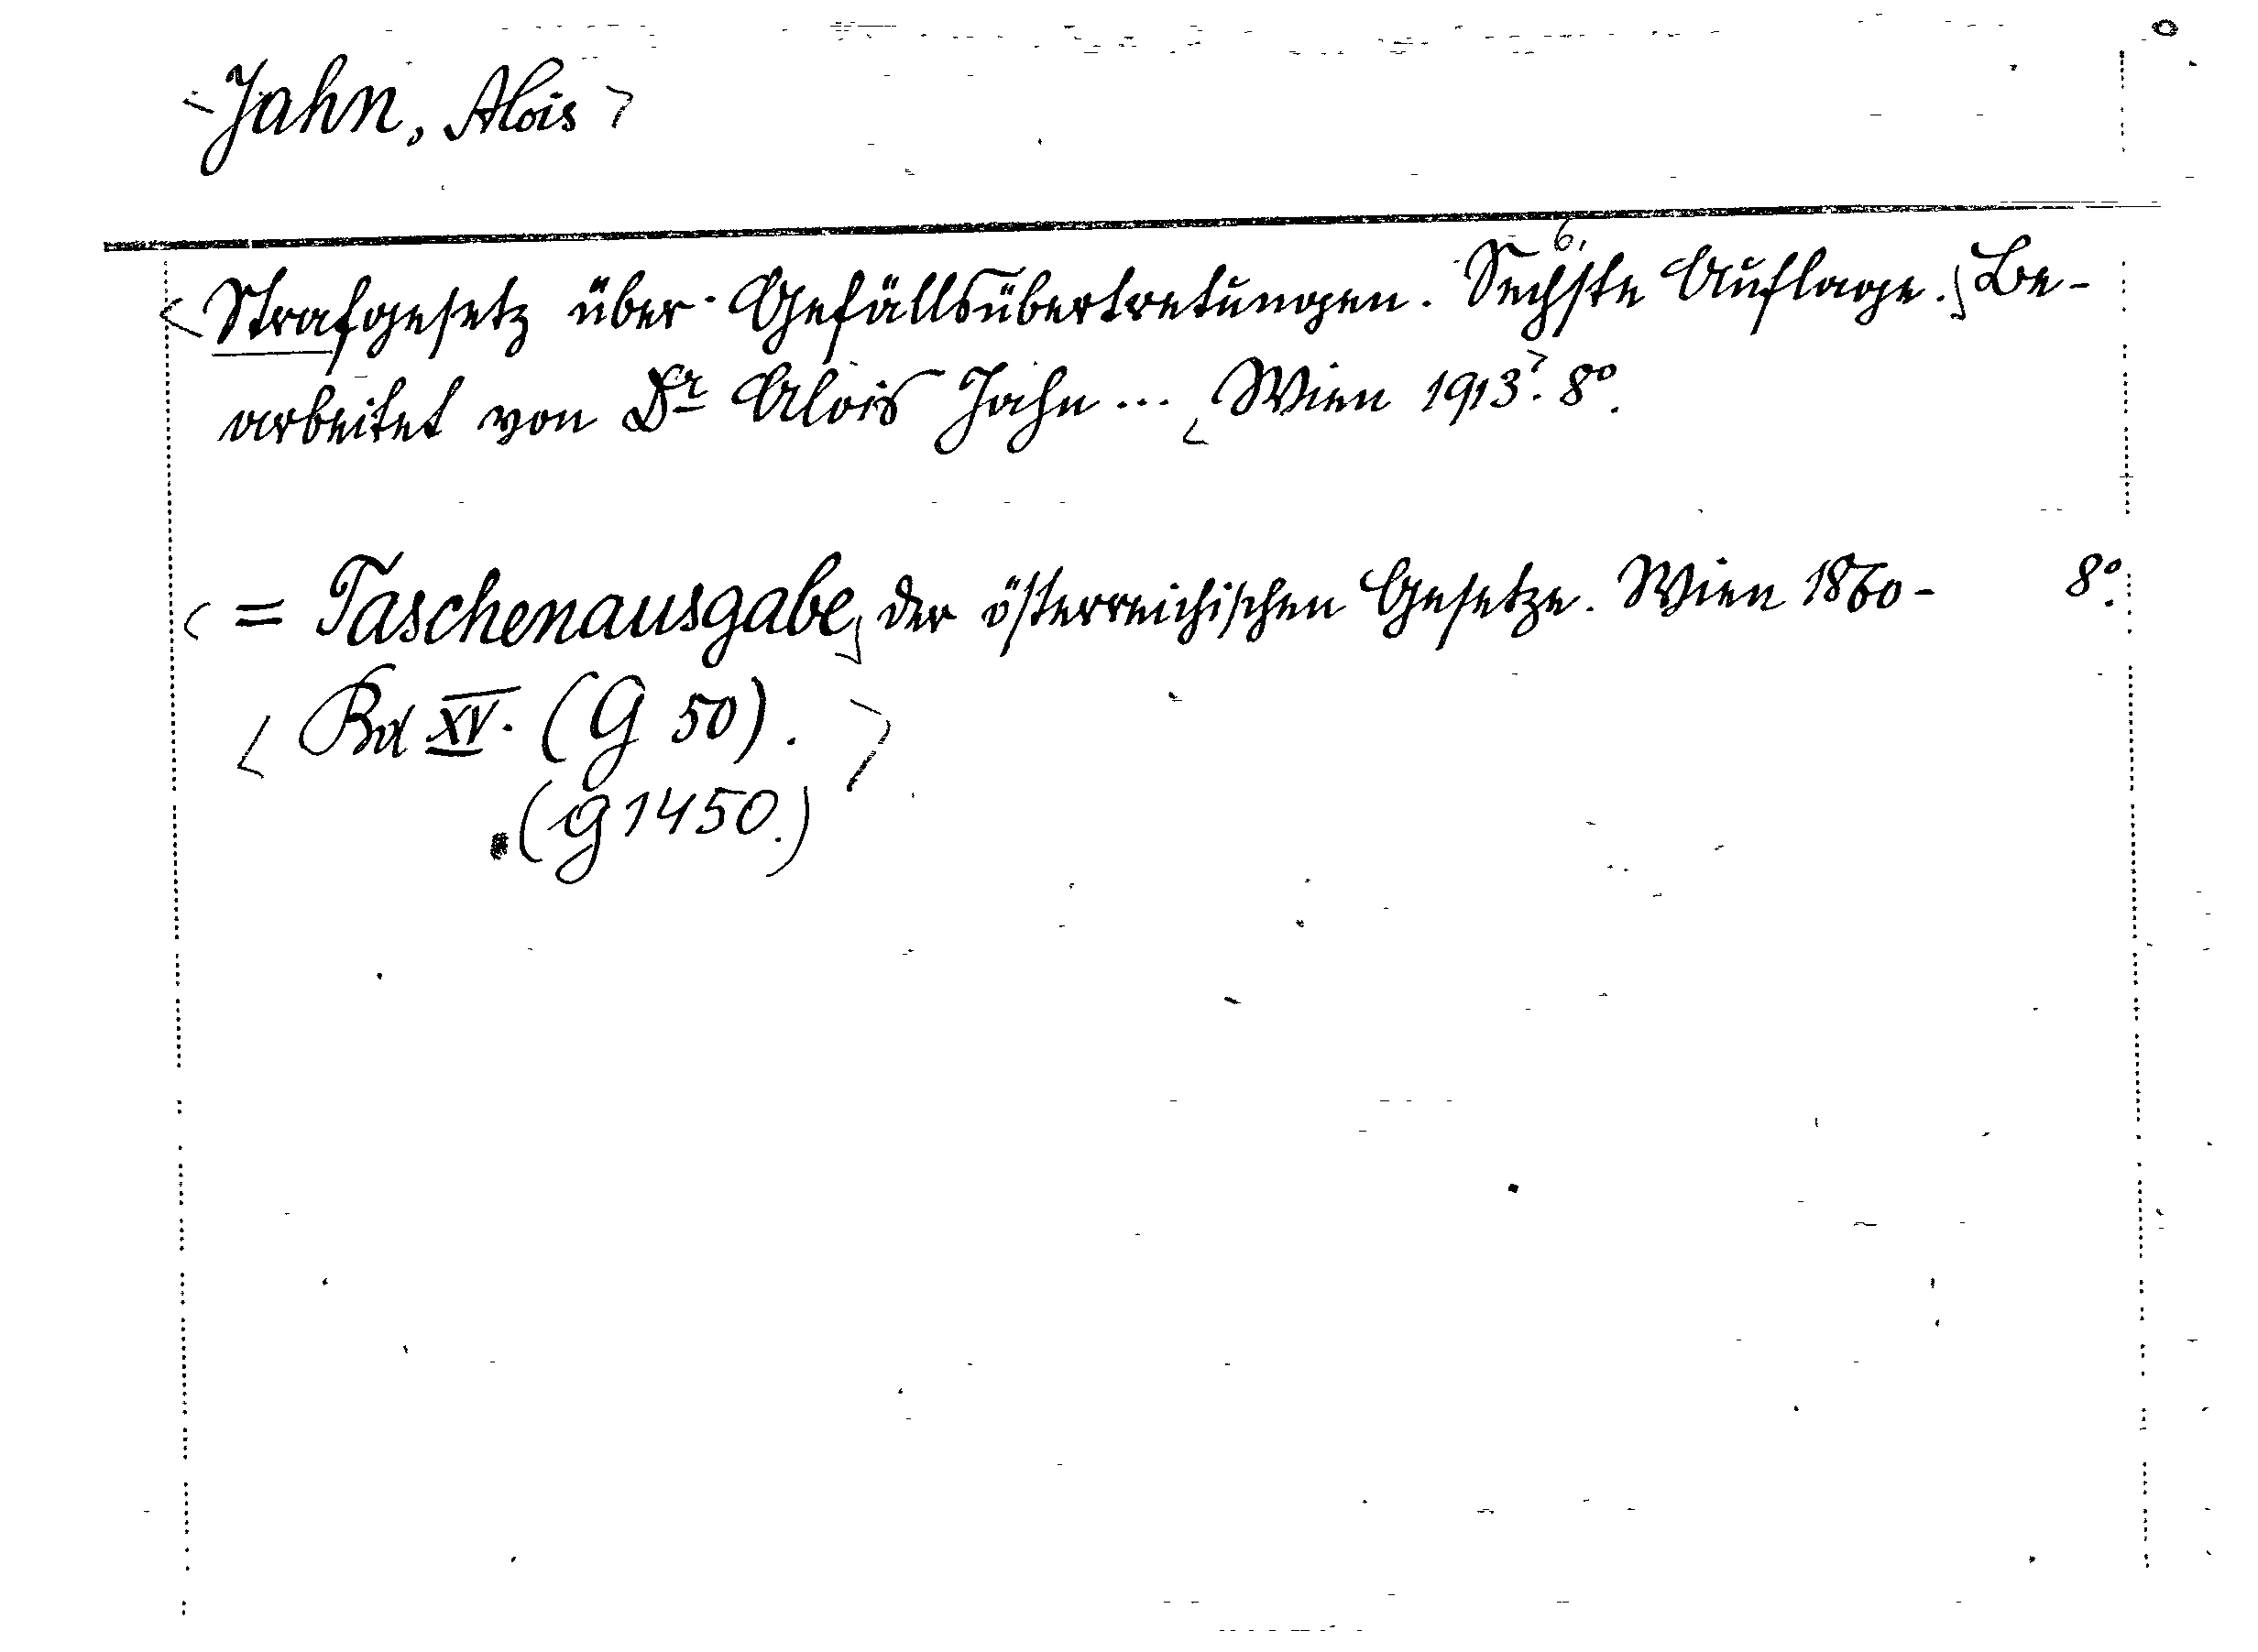 <Jahn, Alois>
6.
<Strafgesetz über Gefällsübertretungen. Sechste Auflage.> Be-
arbeitet von Dr Alois Jahn ... <Wien 1913>. 8°.
<= Taschenausgabe> der österreichischen Gesetze. Wien 1860- 8°.
<Bd XV. (G 50).>
(G 1450.)